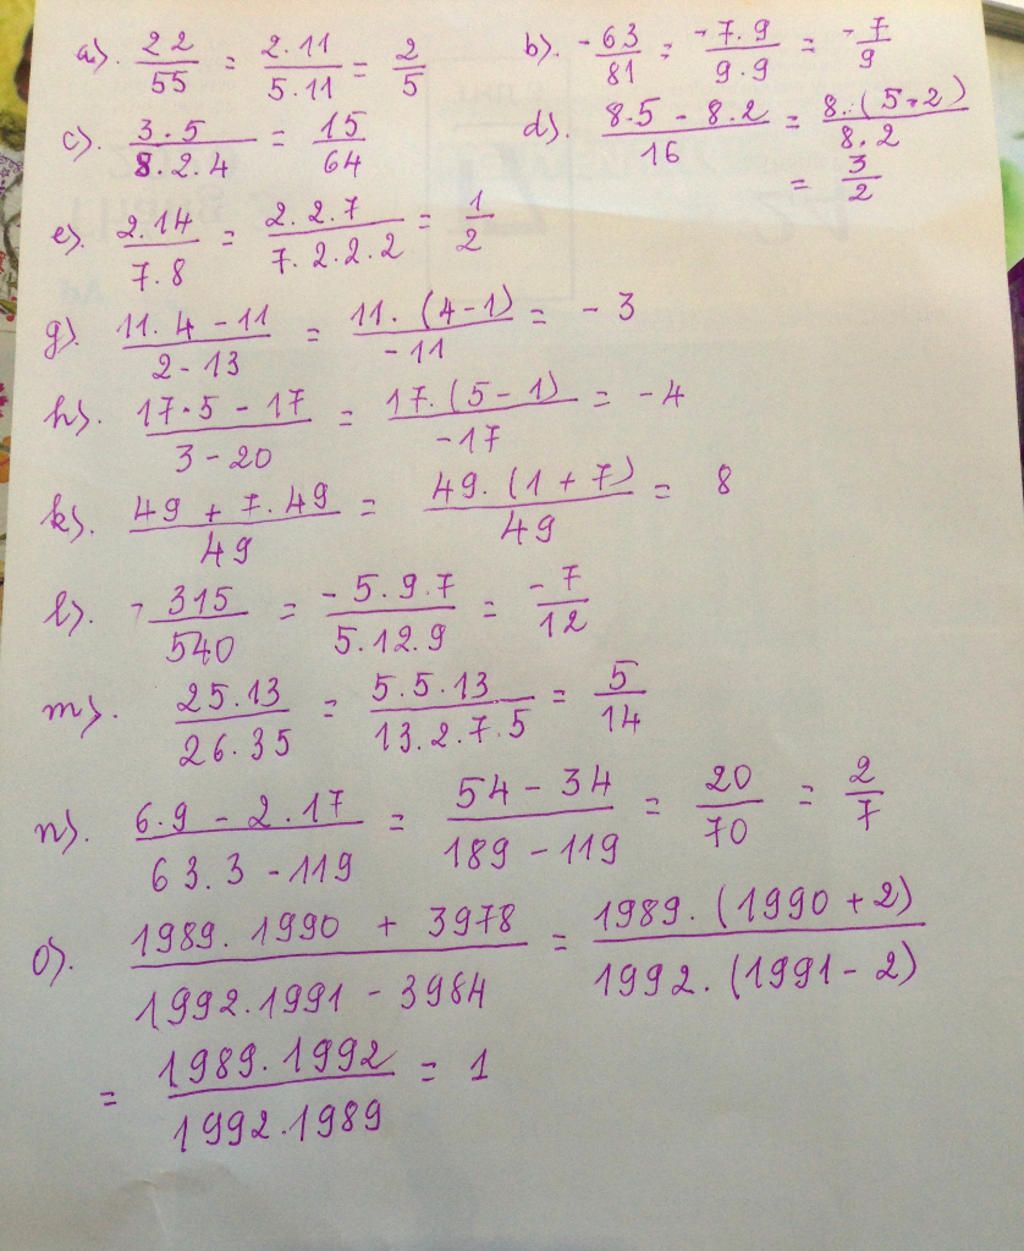 a). 22/55 = 2.11/5.11 = 2/5
b). -63/81 = -7.9/9.9 = -7/9
c). 3.5/8.2.4 = 15/64
d). 8.5 - 8.2/16 = 8.(5-2)/8.2
= 3/2
e). 2.14/7.8 = 2.2.7/7.2.2.2 = 1/2
g). 11.4 - 11/2 - 13 = 11.(4-1)/-11 = -3
h). 17.5 - 17/3 - 20 = 17.(5-1)/-17 = -4
k). 49 + 7.49/49 = 49.(1+7)/49 = 8
l). -315/540 = -5.9.7/5.12.9 = -7/12
m). 25.13/26.35 = 5.5.13/13.2.7.5 = 5/14
n). 6.9 - 2.17/63.3 - 119 = 54 - 34/189 - 119 = 20/70 = 2/7
o). 1989.1990 + 3978/1992.1991 - 3984 = 1989.(1990+2)/1992.(1991-2)
= 1989.1992/1992.1989 = 1